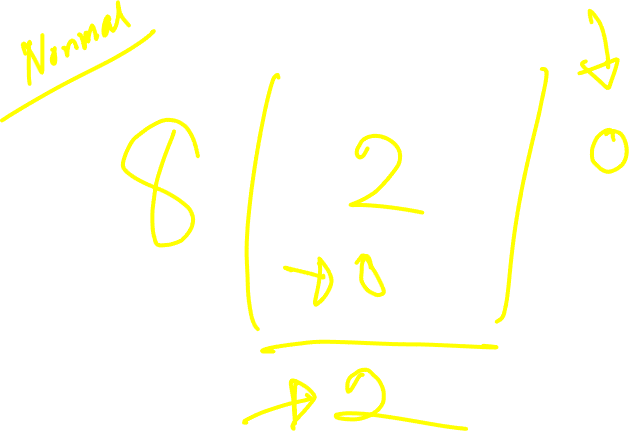 Normal
8 ( 2 ) 0
→ 0
→ 2